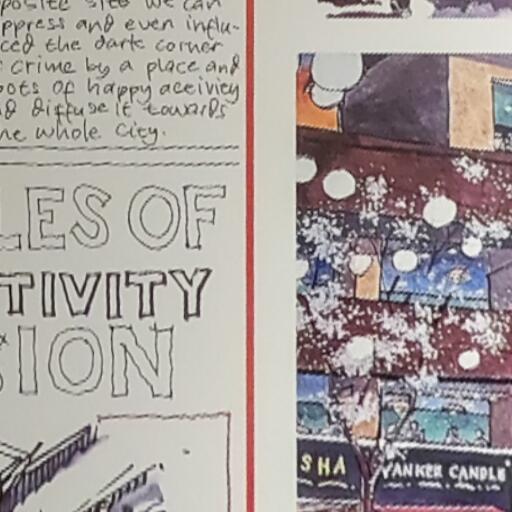 posite site we can
ppress and even influ-
ced the dark corner
crime by a place and
oots of happy activity
diffuse it towards
he whole city.
LES OF
TIVITY
SION
SHA
YANKEE CANDLE